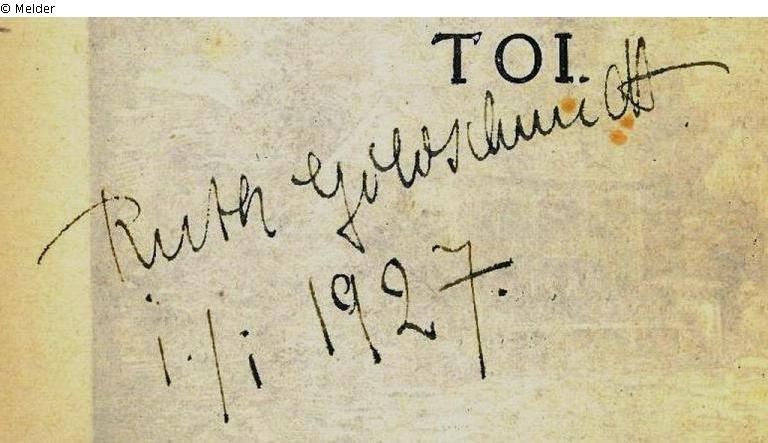 © Melder
TOI.
Ruth Goldschmidt.
i./i 1927.